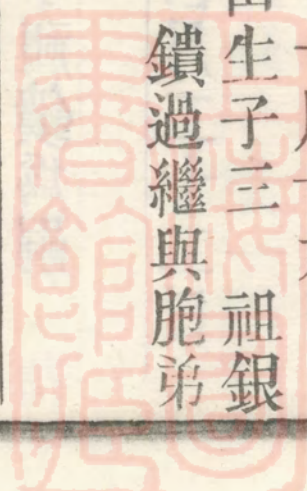 生子三　祖銀
鐨過繼與胞弟